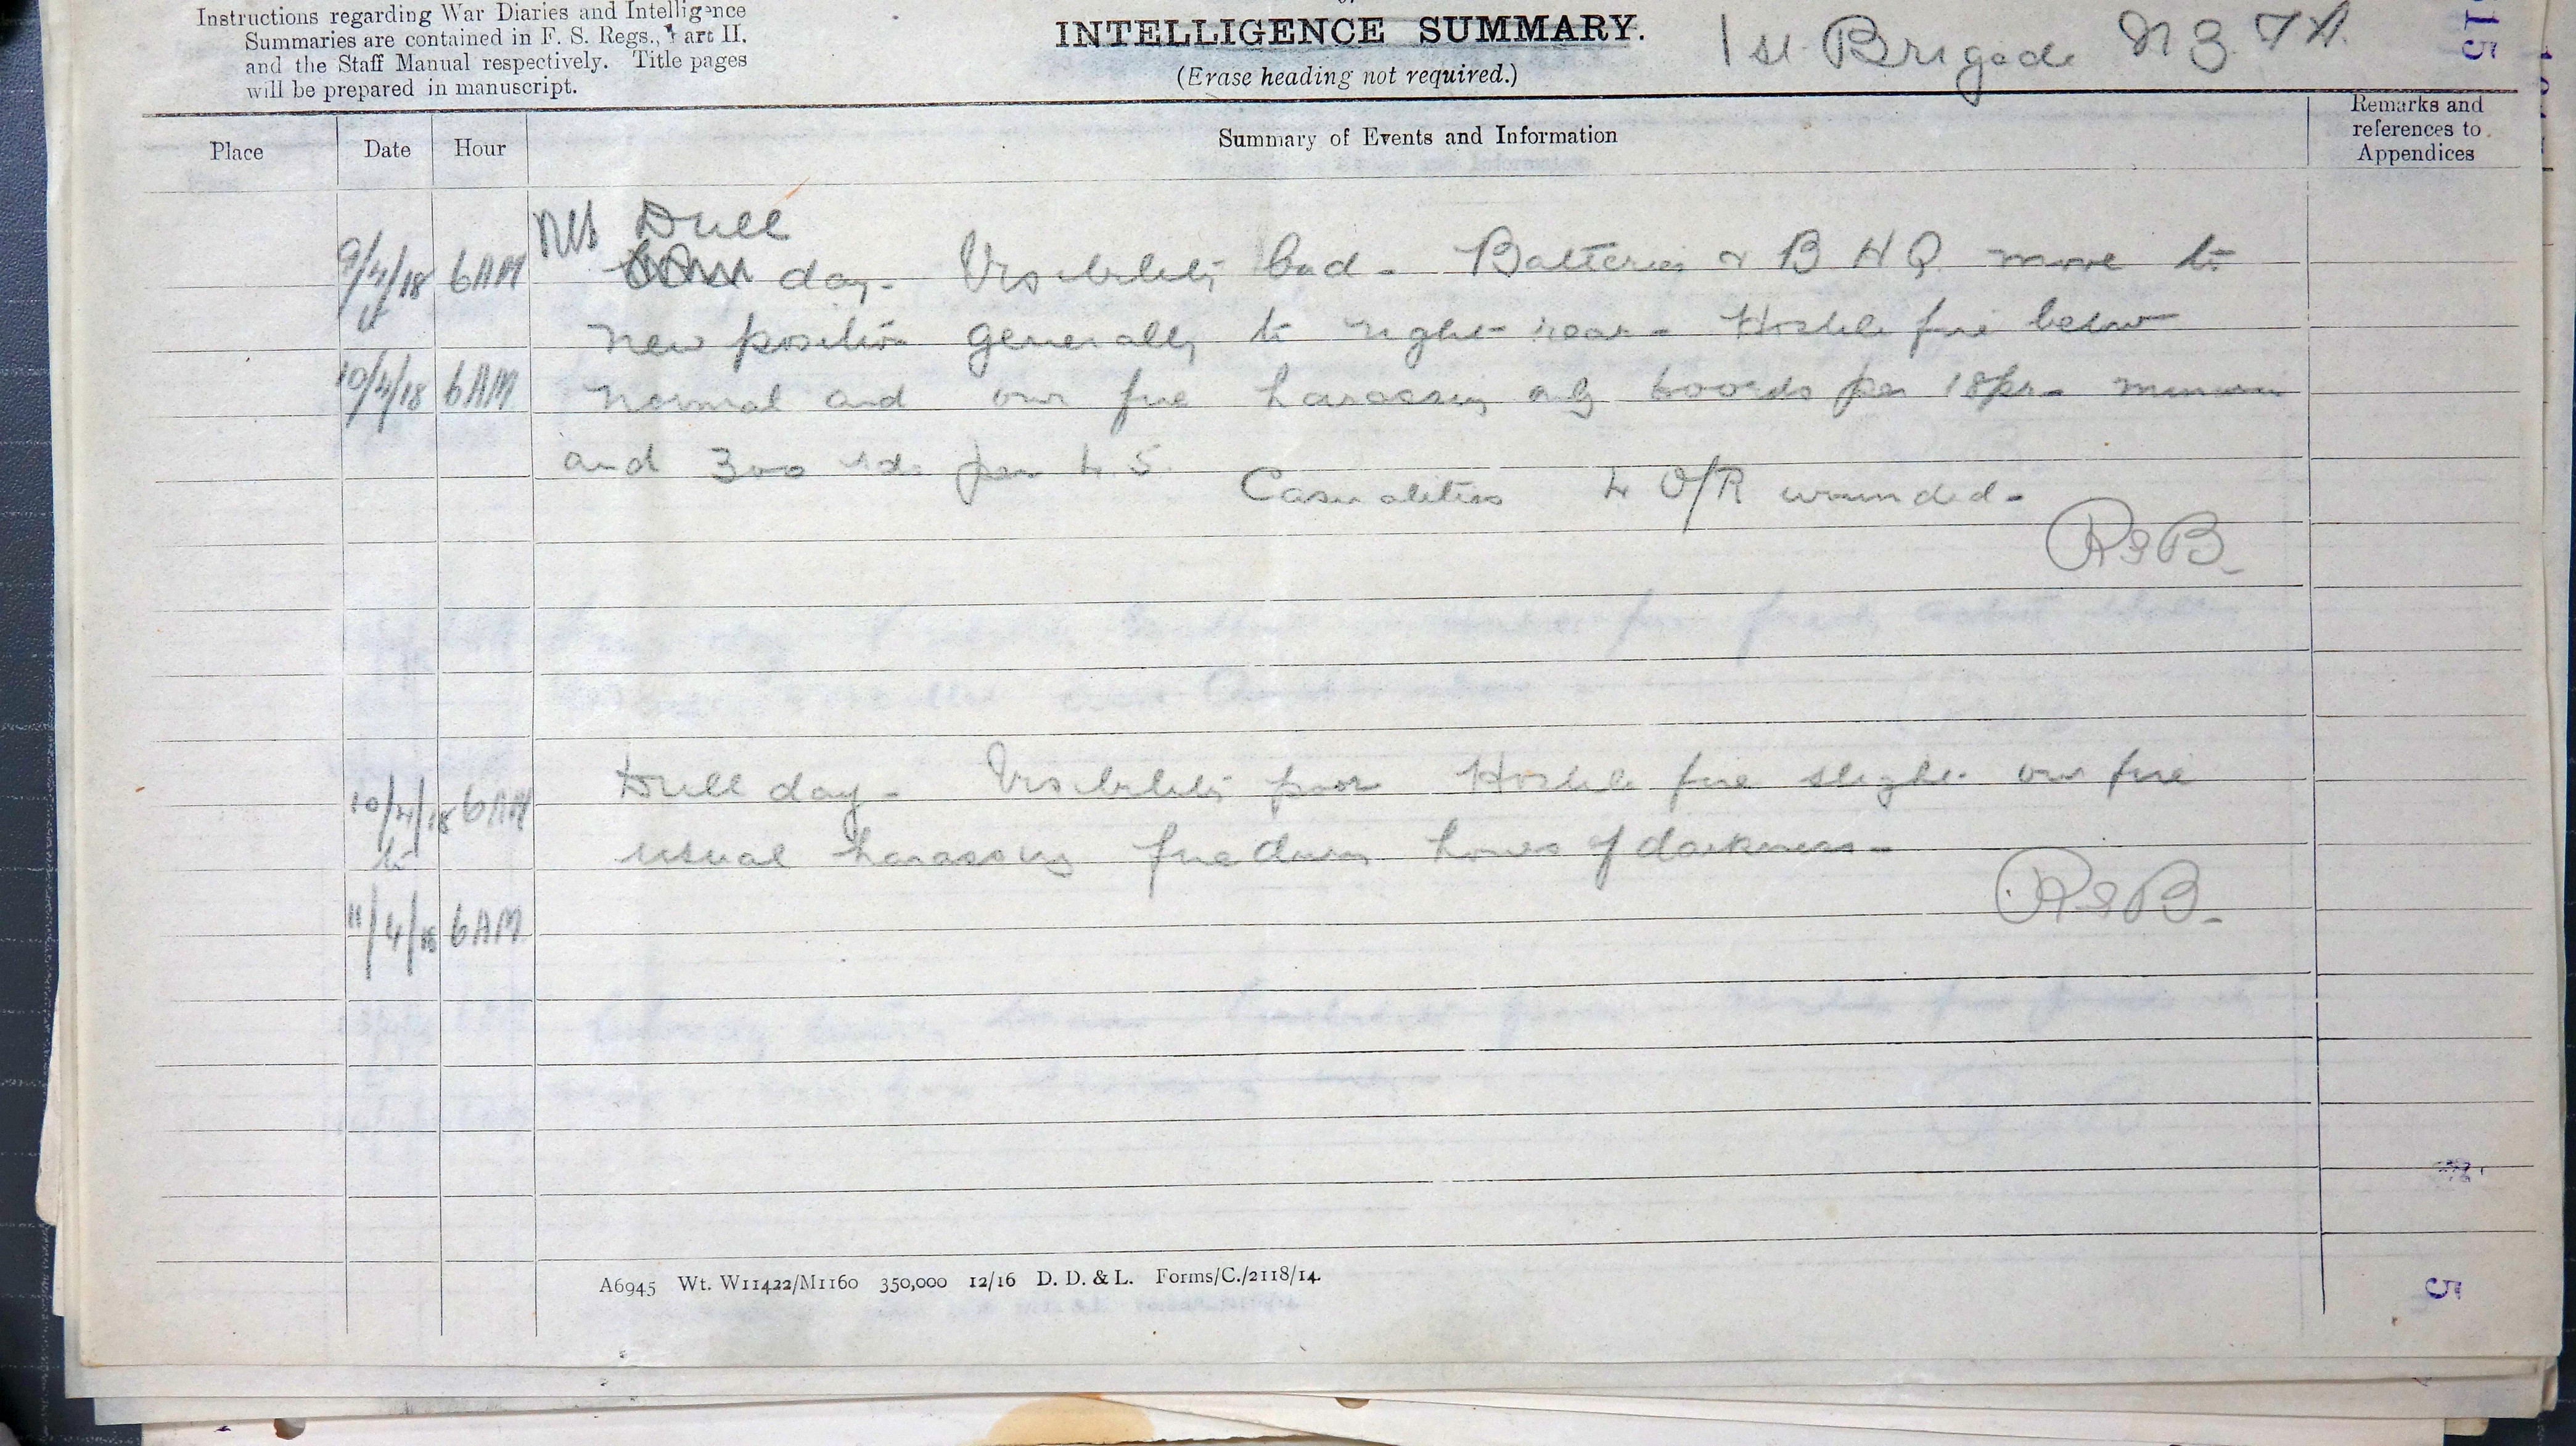 Instructions regarding War Diaries and Intelligence
Summaries are contained in F. S. Regs., Part II.
and the Staff Manual respectively. Title pages
will be prepared in manuscript.
INTELLIGENCE SUMMARY.
(Erase heading not required.)
1st Brigade N Z F A.
15
Place Date Hour Summary of Events and Information Remarks and references to Appendices
Dull
9/4/18 6AM day. Visibility bad. Batteries & B H Q move to
to new position generally to right rear. Hostile fire below
10/4/18 6AM normal and our fire harassing only 600 rds per 18pr.
and 300 rds per 4.5. Casualties 4 O/R wounded.
RSB.
10/4/18 6AM Dull day. Visibility poor Hostile fire slight. our fire
to usual harassing fire during hours of darkness.
11/4/18 6AM
RSB.
A6945 Wt. W11422/M1160 350,000 12/16 D. D. & L. Forms/C./2118/14.
5